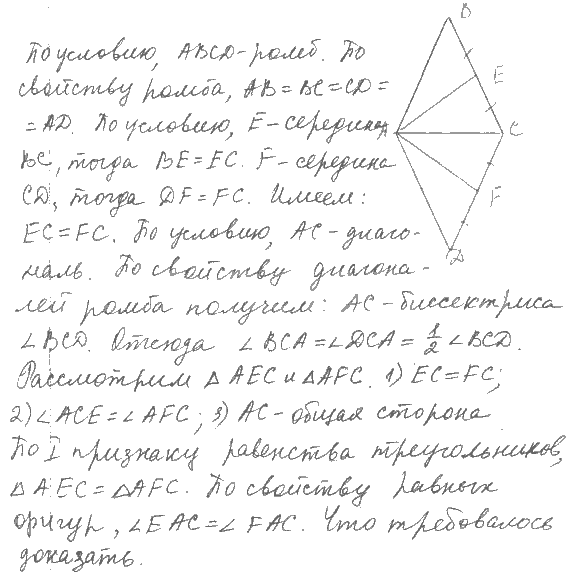 По условию, ABCD-ромб. По
свойству ромба, AB=BC=CD=
=AD. По условию, E-середина
BC, тогда BE=EC. F-середина
CD, тогда DF=FC. Имеем:
EC=FC. По условию, AC-диаго-
наль. По свойству диагона-
лей ромба получим: AC-биссектриса
∠BCD. Отсюда ∠BCA=∠DCA=1/2∠BCD.
Рассмотрим △AEC и △AFC. 1) EC=FC;
2) ∠ACE=∠AFC; 3) AC-общая сторона
По I признаку равенства треугольников,
△AEC=△AFC. По свойству равных
фигур, ∠EAC=∠FAC. Что требовалось
доказать.
B
E
A
C
F
D